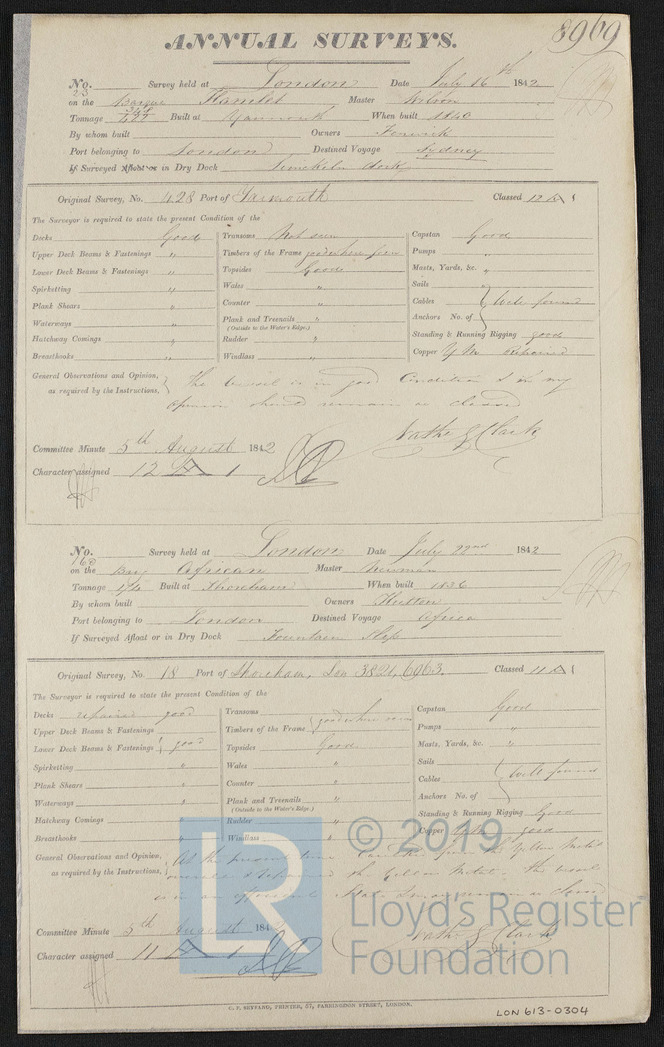 8969
ANNUAL SURVEYS.
No. 23 Survey held at London Date July 16th 1842
on the Barque Hamlet Master Wilson
Tonnage Built at Yarmouth When built 1840
By whom built Owners Fenwick
Port belonging to London Destined Voyage Sydney
If Surveyed Afloat or in Dry Dock Limekiln dock
Original Survey, No. 428 Port of Yarmouth Classed 12 A 1
The Surveyor is required to state the present Condition of the
Decks Good Transoms Not seen Capstan Good
Upper Deck Beams & Fastenings " Timbers of the Frame good where seen Pumps "
Lower Deck Beams & Fastenings " Topsides Good Masts, Yards, &c. "
Spirketting " Wales " Sails "
Plank Shears " Counter " Cables Well found
Waterways " Plank and Treenails " Anchors No. of
(Outside to the Water's Edge.)
Hatchway Comings " Rudder " Standing & Running Rigging good
Breasthooks " Windlass " Copper Y M Repaired
General Observations and Opinion, as required by the Instructions, The Vessel is in good Condition & in my
opinion should remain as classed
Nathl G Clark
Committee Minute 5th August 1842
Character assigned 12 A 1
No. 160 Survey held at London Date July 22nd 1842
on the Brig African Master Newman
Tonnage Built at Shoreham When built 1836
By whom built Owners Hutton
Port belonging to London Destined Voyage Africa
If Surveyed Afloat or in Dry Dock Fountain Slip
Original Survey, No. 18 Port of Shoreham, Lon 3821, 6963. Classed 11 A 1
The Surveyor is required to state the present Condition of the
Decks repaired good Transoms Capstan Good
Upper Deck Beams & Fastenings Timbers of the Frame good where seen Pumps "
Lower Deck Beams & Fastenings good Topsides Good Masts, Yards, &c. "
Spirketting " Wales " Sails
Plank Shears " Counter " Cables Well found
Waterways " Plank and Treenails " Anchors No. of
(Outside to the Water's Edge.)
Hatchway Comings " Rudder " Standing & Running Rigging Good
Breasthooks " Windlass " Copper Y M good
General Observations and Opinion, as required by the Instructions, At the present time the Yellow Metal
the Yellow Metal. The vessel
is in an State & may remain as classed
Nathl G Clark
Committee Minute 5th August 184
Character assigned 11 A 1
C. F. SEYFANG, PRINTER, 57, FARRINGDON STREET, LONDON.
LON 613-0304
LR
© 2019
Lloyd's Register
Foundation